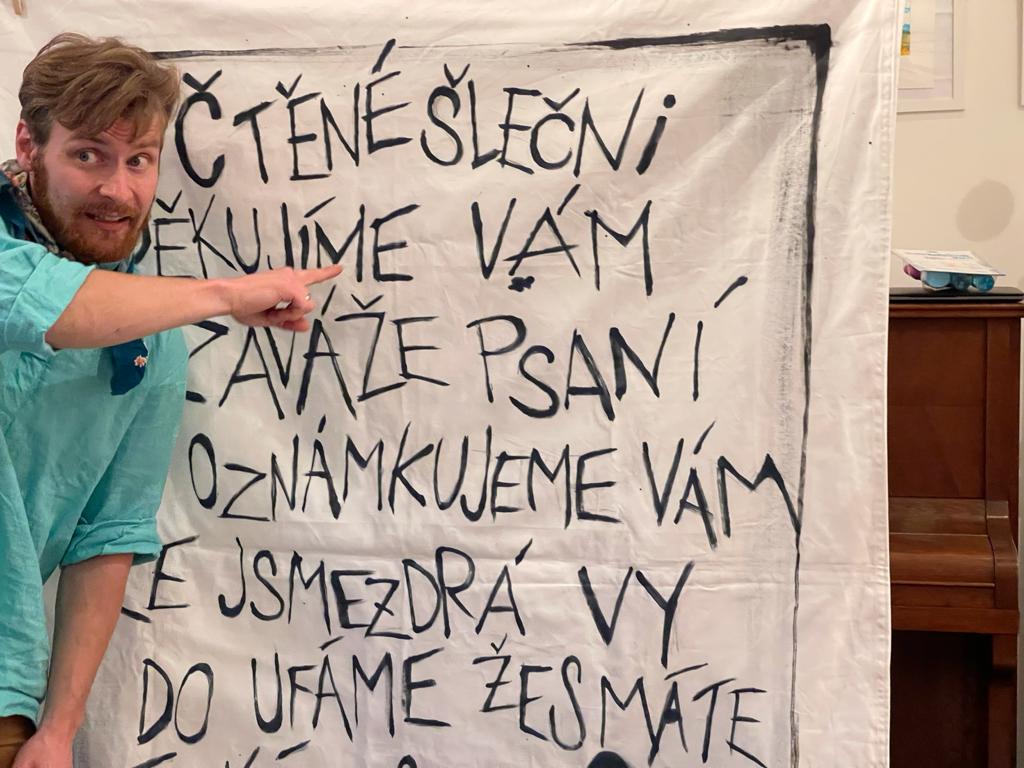 ČTĚNÉ ŠLEČNI
ĚKUJÍME VÁM
ZAVÁŽE PSANÍ
OZNÁMKUJEME VÁM
ŽE JSMEZDRÁ VY
DO UFÁME ŽESMÁTE